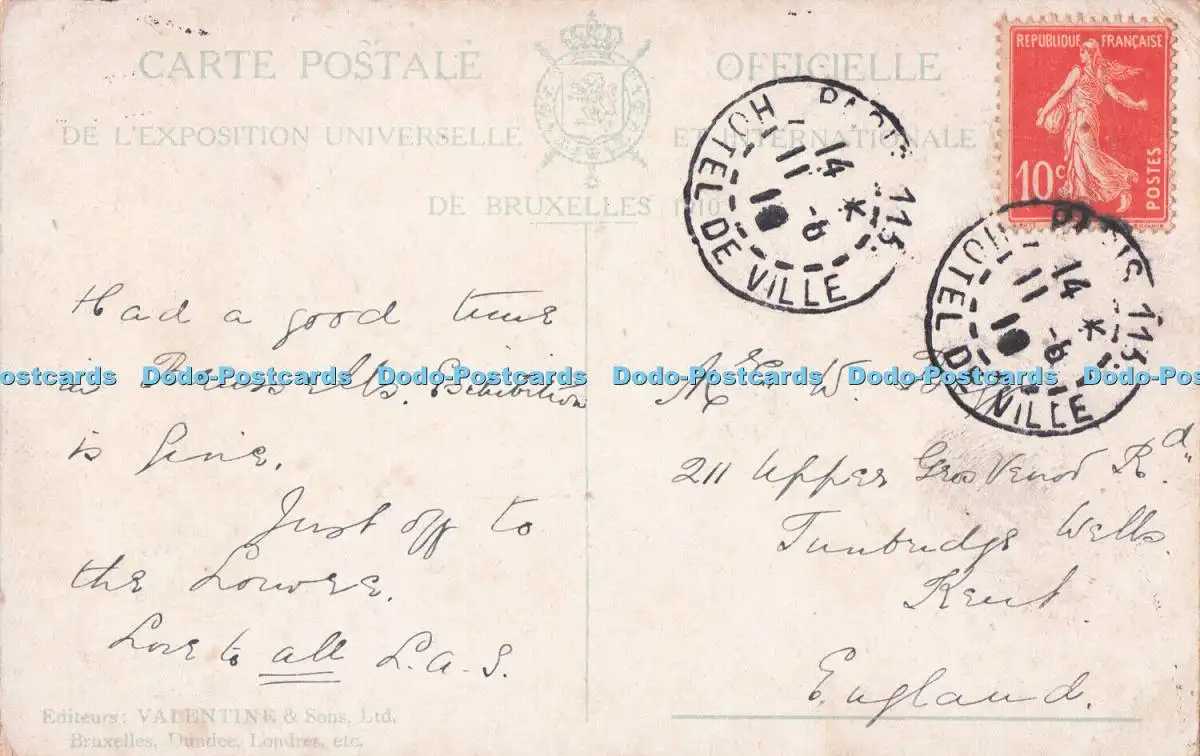 CARTE POSTALE OFFICIELLE
DE L'EXPOSITION UNIVERSELLE ET INTERNATIONALE
DE BRUXELLES 1910
REPUBLIQUE FRANÇAISE
10c
POSTES
PARIS 113
14 - 6
11 10
HOTEL DE VILLE
PARIS 113
14 - 6
11 10
HOTEL DE VILLE
Had a good time
in Brussells. Exhibition
is fine.
Just off to
the Louvre.
Love to all L.A.S.
W.
211 Upper Grosvenor Rd.
Tunbridge Wells.
Kent.
England.
Dodo-Postcards Dodo-Postcards Dodo-Postcards Dodo-Postcards Dodo-Postcards
Editeurs: VALENTINE & Sons, Ltd.
Bruxelles, Dundee, Londres, etc.